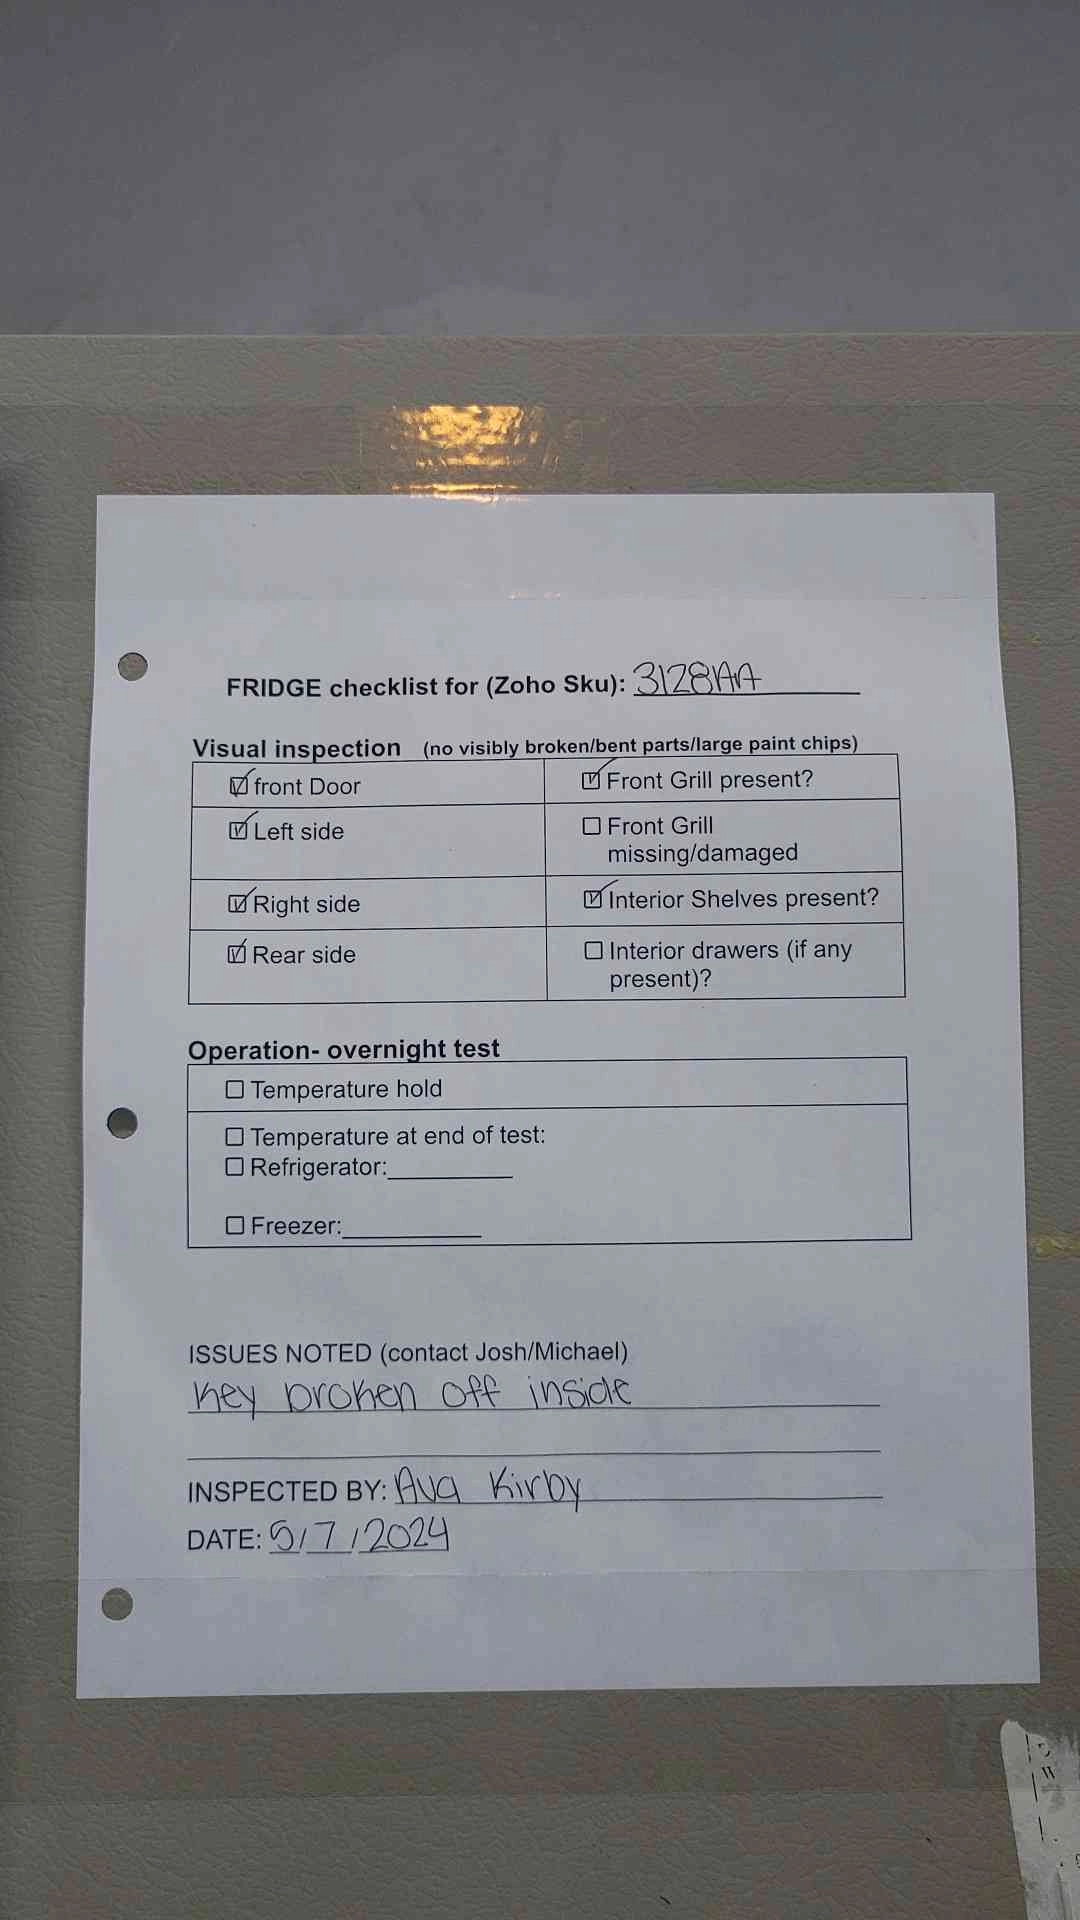 FRIDGE checklist for (Zoho Sku): 3128AA
Visual inspection (no visibly broken/bent parts/large paint chips)
☑ front Door
☑ Front Grill present?
☑ Left side
☐ Front Grill
missing/damaged
☑ Right side
☑ Interior Shelves present?
☑ Rear side
☐ Interior drawers (if any
present)?
Operation- overnight test
☐ Temperature hold
☐ Temperature at end of test:
☐ Refrigerator:
☐ Freezer:
ISSUES NOTED (contact Josh/Michael)
Key broken off inside
INSPECTED BY: Ava Kirby
DATE: 5/7/2024